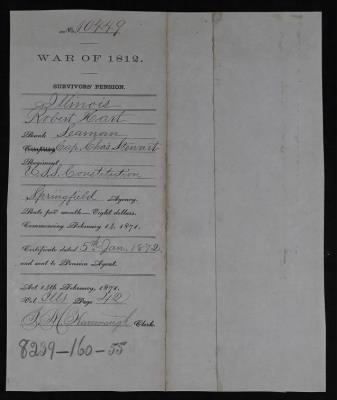 No. 10449
WAR OF 1812.
SURVIVORS' PENSION.
Illinois
Robert Hart
Rank Seaman
Company Cap. Chas Stewart
Regiment
U.S.S. Constitution
Springfield Agency.
Rate per month—Eight dollars.
Commencing February 14, 1871.
Certificate dated 5th Jan. 1872
and sent to Pension Agent.
Act 14th February, 1871.
Vol. Ills Page 42
Clerk.
8239-160-55